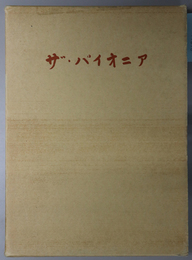 ザ・パイオニア